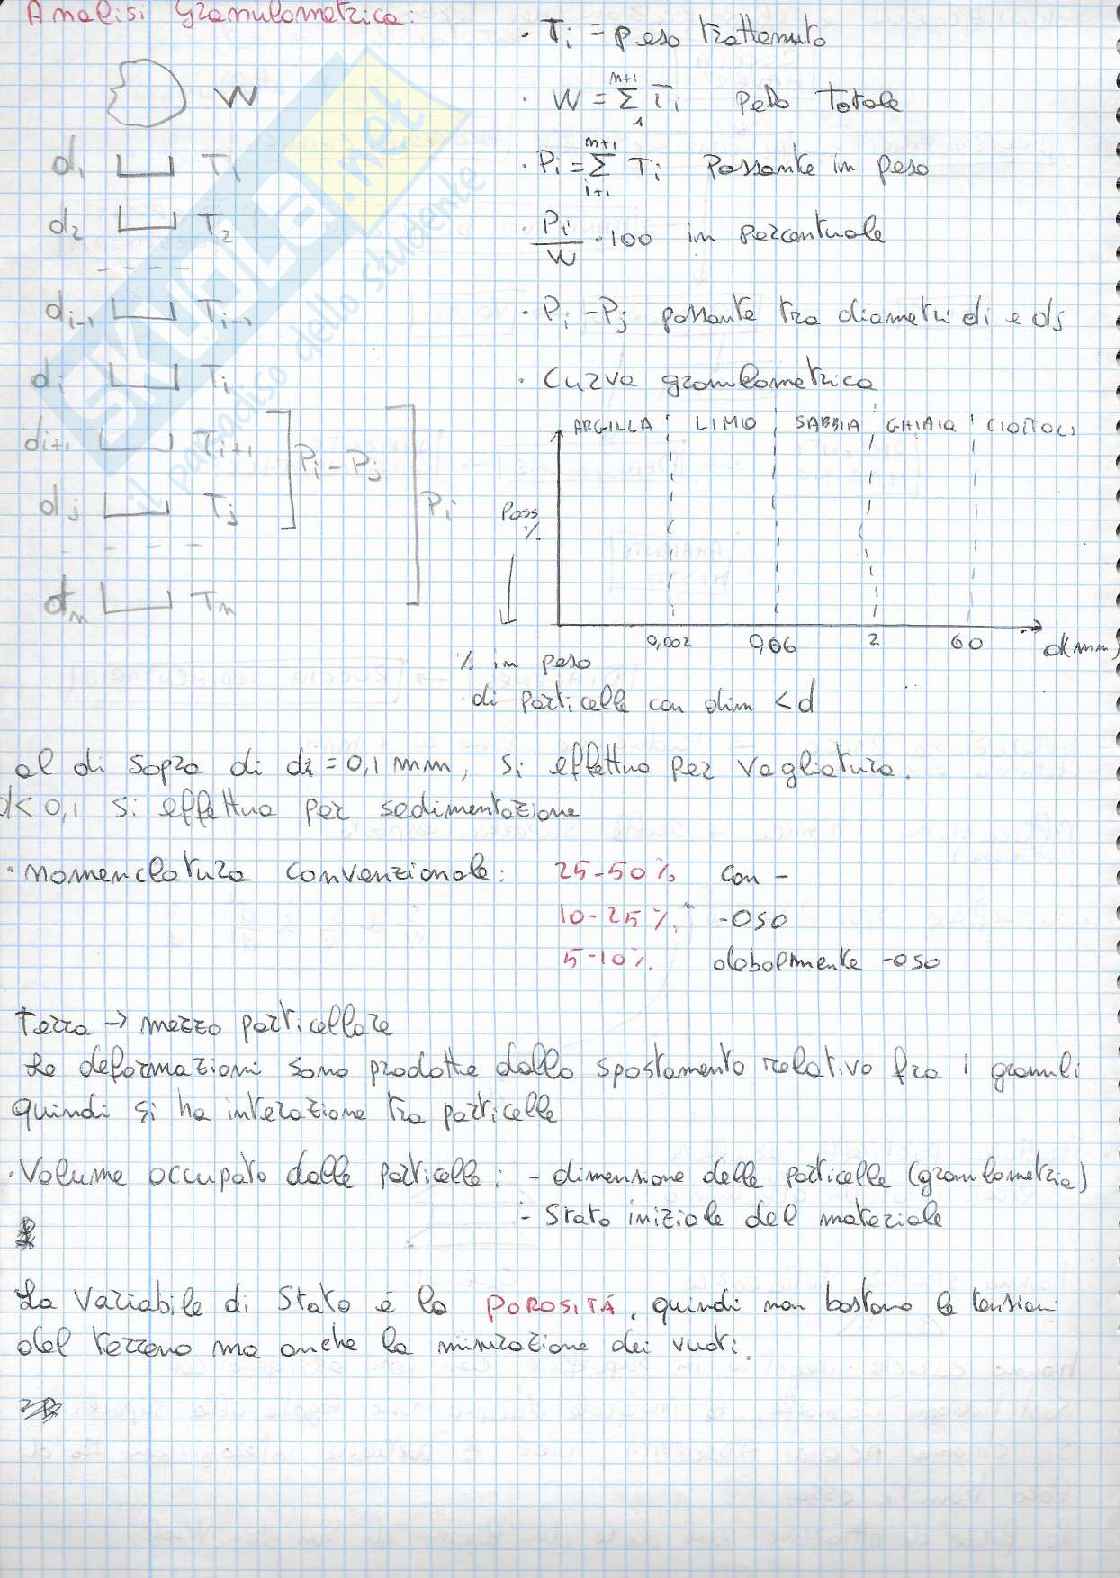 Analisi Granulometrica:
W
d1 T1
d2 T2
di-1 Ti-1
di Ti
di+1 Ti+1
dj Tj
dn Tn
Pi - Pj
Pi
SKUOLA.net
il paradiso dello studente
· Ti = peso trattenuto
· W = Σ Ti peso Totale
n+1
1
· Pi = Σ Ti Passante in peso
n+1
i+1
· Pi/W · 100 in percentuale
· Pi - Pj passante tra diametri di e dj
· Curva granulometrica
ARGILLA LIMO SABBIA GHIAIA CIOTTOLI
Pass %
0,002 0,06 2 60 d(mm)
% in peso
di particelle con dim < d
al di sopra di di = 0,1 mm, si effettua per vagliatura.
d< 0,1 si effettua per sedimentazione
· nomenclatura convenzionale: 25-50% con -
10-25% -oso
5-10% debolmente -oso
Terra → mezzo particellare
Le deformazioni sono prodotte dallo spostamento relativo fra i granuli
quindi si ha interazione tra particelle
· Volume occupato dalle particelle: - dimensione delle particelle (granulometria)
- Stato iniziale del materiale
La variabile di Stato è la POROSITÁ, quindi non bastano le tensioni
del terreno ma anche la misurazione dei vuoti.